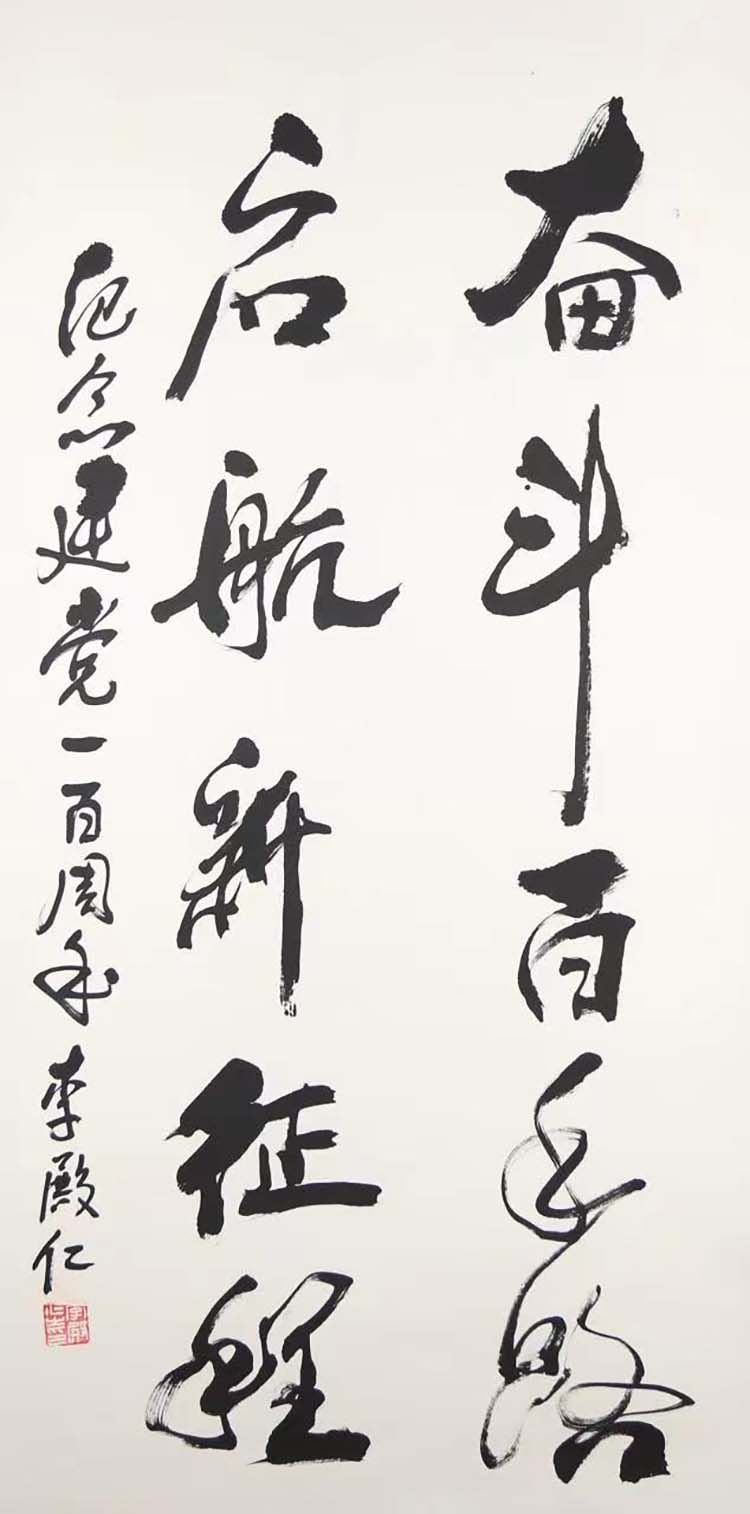 奋斗百年路
启航新征程
纪念建党一百周年 李殿仁